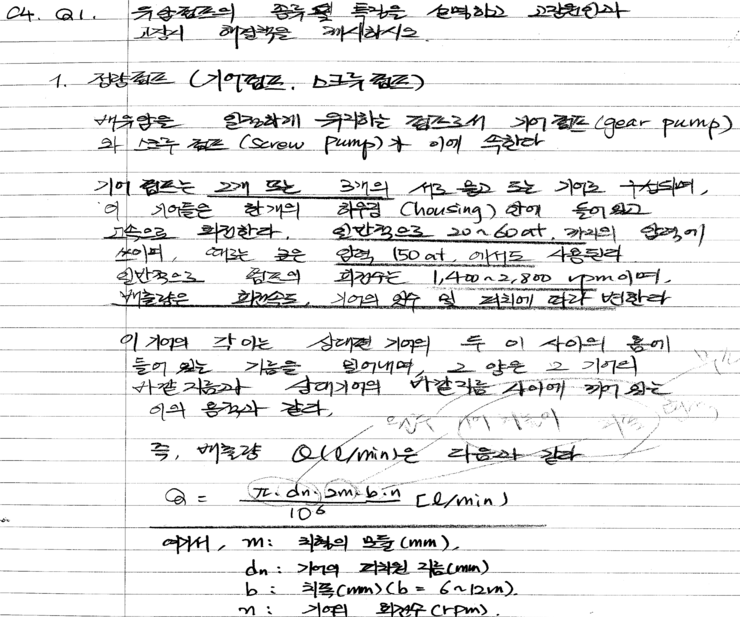 C4. Q1. 유압펌프의 종류 및 특징을 설명하고 고장원인과
고장시 해결책을 제시하시오
1. 정량펌프 (기어펌프, 스크류 펌프)
배유량을 일정하게 유지하는 펌프로서 기어 펌프(gear pump)
와 스크류 펌프 (screw pump)가 이에 속한다
기어 펌프는 2개 또는 3개의 서로 물고 도는 기어로 구성되며,
이 기어들은 한개의 하우징 (housing) 안에 들어 있고
고속으로 회전한다. 일반적으로 20~60at, 까지의 압력에
쓰이며, 때로는 높은 압력 150at, 에서도 사용된다
일반적으로 펌프의 회전수는 1,400~2,800 rpm이며,
배출량은 회전속도, 기어의 잇수 및 피치에 따라 변한다
이 기어의 각 이는 상대편 기어의 두 이 사이의 홈에
들어 있는 기름을 밀어내며, 그 양은 그 기어의
바깥지름과 상대기어의 바깥지름 사이에 끼어 있는
이의 용적과 같다.
즉, 배출량 Q(l/min)은 다음과 같다
Q = π·dn·2m·b·n / 10⁶ [l/min]
여기서, m: 치형의 모듈(mm),
dn : 기어의 피치원 지름(mm)
b : 치폭(mm)(b = 6~12m).
n : 기어의 회전수(rpm).